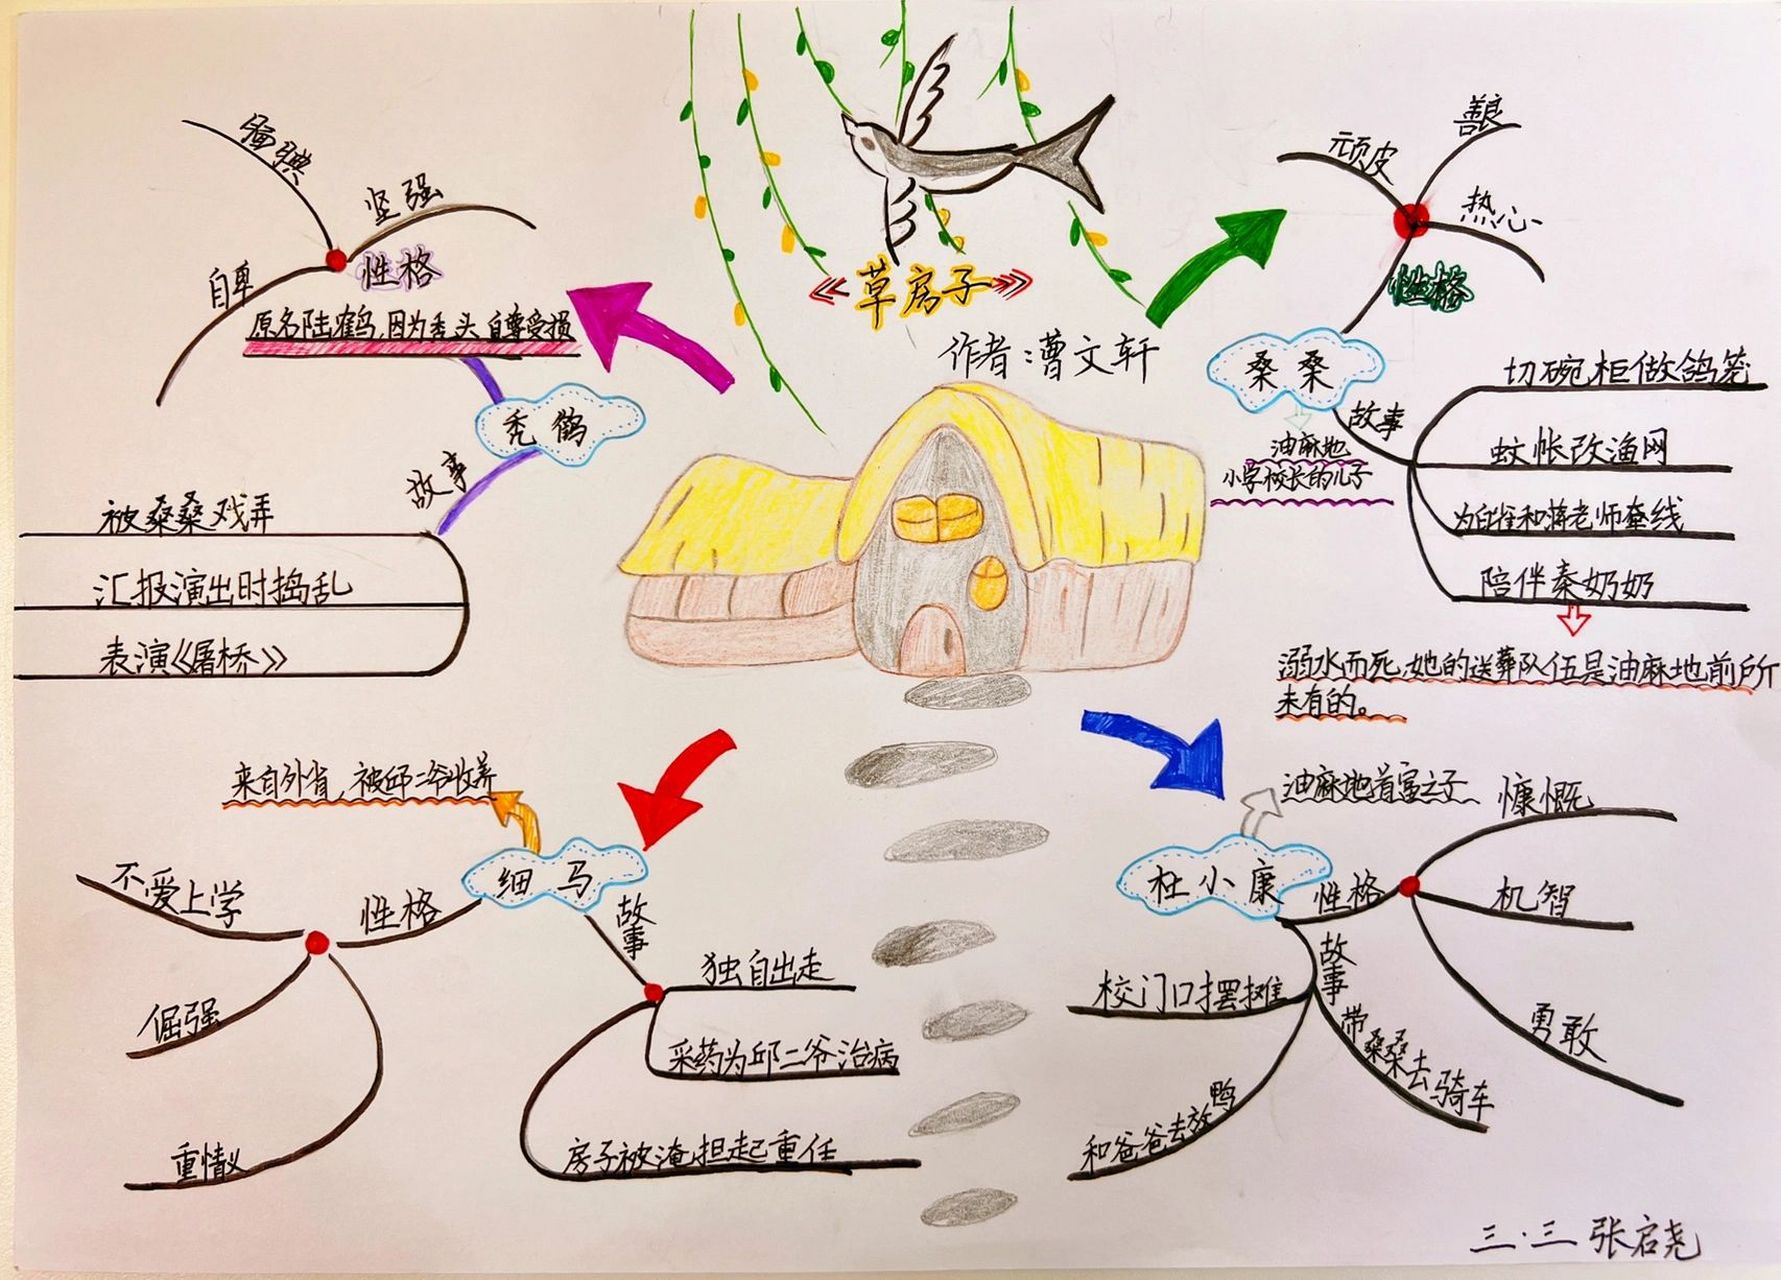 《草房子》
作者:曹文轩
坚强
自卑
性格
原名陆鹤,因为秃头,自尊受损
秃鹤
故事
被桑桑戏弄
汇报演出时捣乱
表演《屠桥》
顽皮
善良
热心
性格
桑桑
油麻地
小学校长的儿子
故事
切碗柜做鸽笼
蚊帐改渔网
为白雀和蒋老师牵线
陪伴秦奶奶
溺水而死,她的送葬队伍是油麻地前所
未有的。
来自外省,被邱二爷收养
细马
性格
不爱上学
倔强
重情义
故事
独自出走
采药为邱二爷治病
房子被淹,担起重任
油麻地首富之子
杜小康
性格
慷慨
机智
勇敢
故事
校门口摆摊
带桑桑去骑车
和爸爸去放鸭
三.三 张启尧